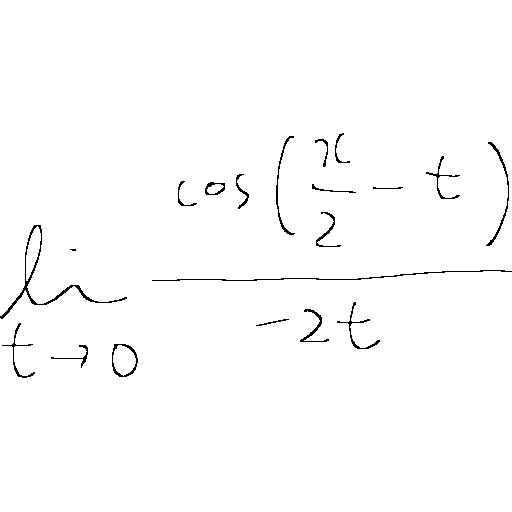 \lim_{t \to 0} \frac{\cos\left(\frac{\pi}{2} - t\right)}{-2t}